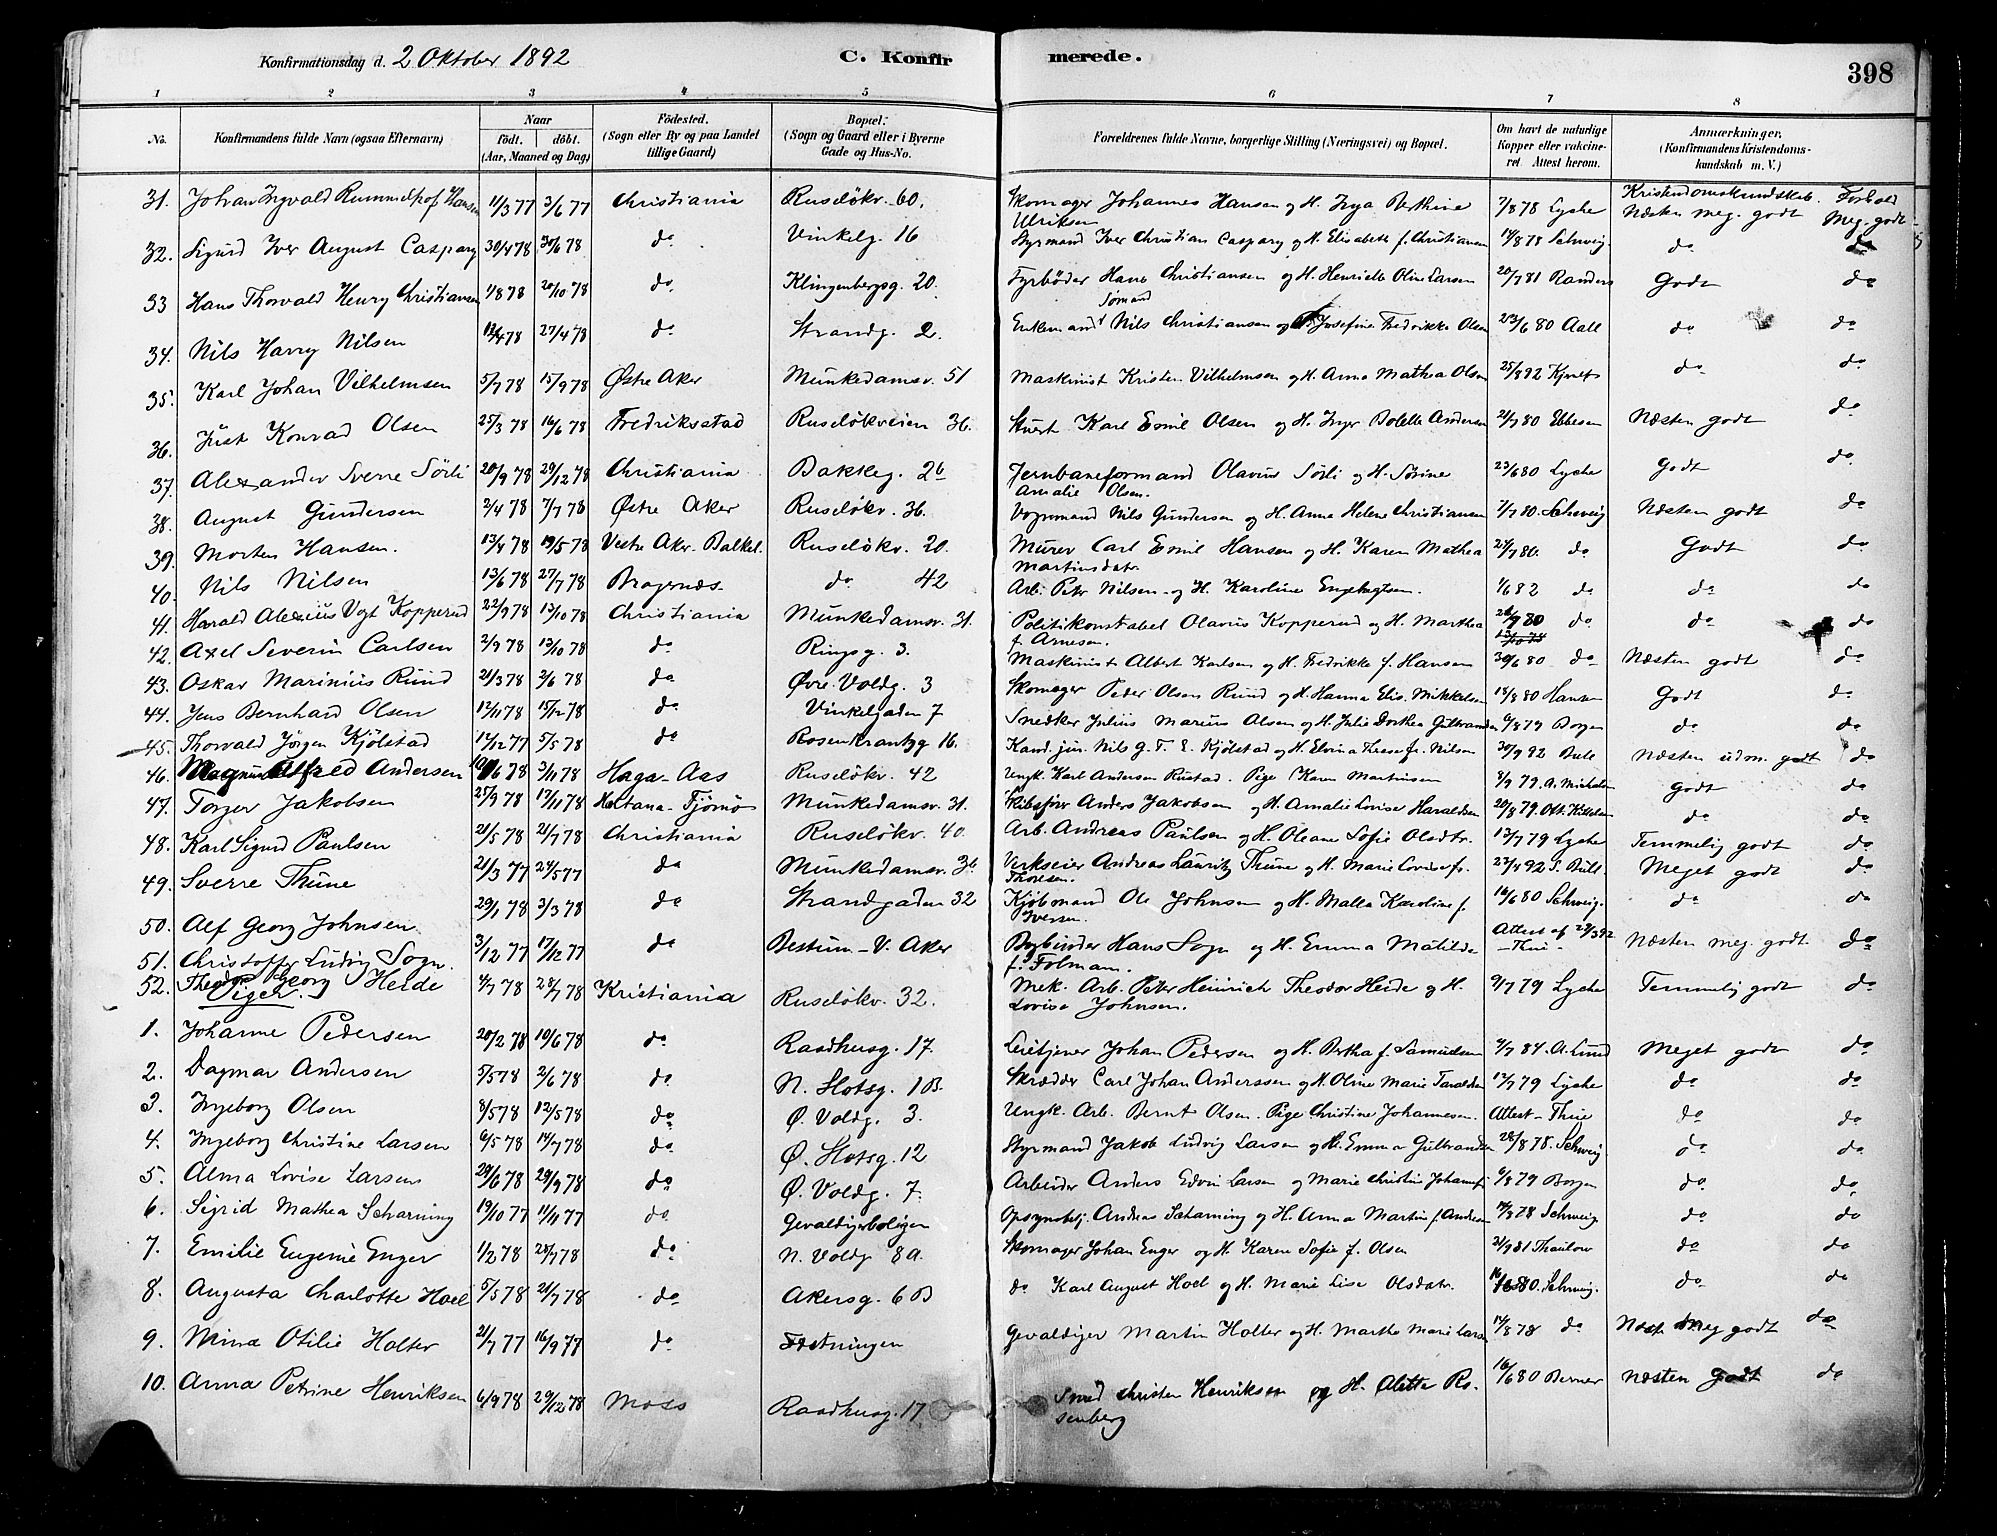 Konfirmationsdag d. 2 Oktober 1892 C. Konfirmerede. 398
1 2 3 4 5 6 7 8
No. Konfirmandens fulde Navn (ogsaa Efternavn) Naar födt. döbt. (Aar, Maaned og Dag) Födested. (Sogn eller By og paa Landet tillige Gaard) Bopæl: (Sogn og Gaard eller i Byerne Gade og Hus-No. Forældrenes fulde Navne, borgerlige Stilling (Næringsvei) og Bopæl. Om havt de naturlige Kopper eller vakcineret. Attest herom. Anmærkninger. (Konfirmandens Kristendomskundskab m. V.)
Kristendomskundskab. Forhold
31. Johan Ingvald Hansen 11/3 77 3/6 77 Christiania Ruseløkv. 60. Skomager Johannes Hansen og H. Inga Berthine Ulriksen 7/8 78 Lyche Næsten meg. godt Meg. godt
32. Sigurd Iver August Caspary 30/4 78 30/6 78 do Vinkelg. 16 Styrmand Iver Christian Caspary og H. Elisabeth f. Christiansen 14/8 78 Schweig. do do
33 Hans Thorvald Henry Christiansen 1/8 78 20/10 78 do Klingenbergg. 20. Fyrbøder Hans Christiansen og H. Henriette Oline Larsen 20/7 81 Randers Godt do
34. Nils Harry Nilsen 12/4 78 27/4 78 do Strandg. 2. Enkemand Sømand Nils Christiansen og Josefine Fredrikke Olsen 23/6 80 Aall do do
35. Karl Johan Vilhelmsen 5/7 78 15/9 78 Østre Aker Munkedamsv. 51 Maskinist Kristen Vilhelmsen og H. Anna Mathea Olsen 25/8 92 do do
36. Just Konrad Olsen 25/3 78 16/6 78 Fredriksstad Ruseløkveien 36. Stuert Karl Emil Olsen og H. Inger Bolette Andersen 21/7 80 Ebbesen Næsten godt do
37. Alexander Sverre Sörli 20/9 78 29/12 78 Christiania Bakkeg. 2b Jernbaneformand Olavus Sörli og H. Sørine Amalie Olsen. 23/6 80 Lyche Godt do
38. August Gundersen 2/4 78 7/7 78 Østre Aker Ruseløkv. 36. Vognmand Nils Gundersen og H. Anne Helene Christiansen 7/7 80. Schweig Næsten godt do
39. Morten Hansen. 13/4 78 19/5 78 Vestre Aker. Balkel. Ruseløkv. 20. Murer Carl Emil Hansen og H. Karen Mathea Martinsdatr. 27/7 80. do Godt do
40. Nils Nilsen 13/6 78 27/7 78 Bragernæs do 42 Arb. Petr Nilsen og H. Karoline Engebrgtsen. 1/6 82 do do do
41. Harald Alexius Vogt Kopperud 22/9 78 13/10 78 Christiania Munkedamsv. 31. Politikonstabel Olavus Kopperud og H. Marthea f. Arnesen. 24/9 80 do do do
42. Axel Severin Carlsen 2/9 78 13/10 78 do Ringsg. 3. Maskinist Albert Karlsen og H. Fredrikke f. Hansen 30/6 80 do Næsten godt do
43. Oskar Marinius Rund 21/3 78 2/6 78 do Øvre Voldg. 3 Skomager Peder Olsen Rund og H. Hanna Elis. Mikkelsen 18/8 80 Hansen Godt do
44. Jens Bernhard Olsen 12/11 78 15/12 78 do Vinkelgaden 7 Snedker Julius Marius Olsen og H. Julie Dorthea Gulbrandsen 6/8 79 Borgen do do
45. Thorvald Jörgen Kjölstad 14/12 77 5/5 78 do Rosenkrantzg 16. Kand. jur. Nils G. T. E. Kjölstad og H. Elvina Therese f. Nilsen 30/9 92 Bule Næsten udm. godt do
46. Magnus Alfred Andersen 10/6 78 3/11 78 Haga-Aas Ruseløkv. 42 Ungk. Karl Andersen Rustad. Pige Karen Martinsen 8/9 79. A. Michelsen godt do
47. Torger Jakobsen 25/9 78 17/11 78 Holtana-Tjömö Munkedamsv. 31. Skibsfører Anders Jakobsen og H. Amalie Lovise Haraldsen 20/8 79. Ott. Kittelsen do do
48. Karl Sigurd Paulsen 21/5 78 21/7 78 Christiania Ruseløkv. 40 Arb. Andreas Paulsen og H. Oleane Sofie Olsdtr. 13/7 79 Lyche Temmelig godt do
49. Sverre Thune 21/3 77 24/5 77 do Munkedamsv. 36 Verkseier Andreas Lauritz Thune og H. Marie Lovise f. Thoresen. 22/4 92 S. Bull. Meget godt do
50. Alf Georg Johnsen 29/1 78 3/3 78 do Strandgaden 32 Kjøbmand Ole Johnsen og H. Malla Karoline f. Iversen. 16/6 80 Schweig. do do
51. Christoffer Ludvig Sogn. 3/12 77 17/12 77 do Bestum-V. Aker Bogbinder Hans Sogn og H. Emma Matilde f. Folmann. Attest af 29/3 92 Thue Næsten meg. godt. do
52. Theodor Georg Heide 4/7 78 28/7 78 Kristiania Ruseløkv. 32. Mek. Arb. Peter Heinrich Theodor Heide og H. Lovise Johnsen. 9/7 79 Lyche Temmelig godt do
Piger.
1. Johanne Pedersen 20/2 78 10/6 78 do Raadhusg. 17. Leietjener Johan Pedersen og H. Bertha f. Samuelsen 2/7 84. A. Lund Meget godt do
2. Dagmar Andersen 5/5 78 2/6 78 do N. Slotsg. 1 B. Skrædder Carl Johan Anderssen og H. Oline Marie Taraldsen 12/7 79 Lyche do do
3. Ingeborg Olsen 8/5 78 12/5 78 do Ø. Voldg. 3. Ungk. Arb. Bernt Olsen. Pige Christine Johannesen. Attest-Thue do do
4. Ingeborg Christine Larsen 6/5 78 14/7 78 do Ø. Slotsg. 12 Styrmand Jakob Ludvig Larsen og H. Emma Gulbrandsen 28/8 78. Schweig. do do
5. Alma Lovise Larsen 29/6 78 29/9 78 do Ø. Voldg. 7. Arbeider Anders Edvin Larsen og Marie Christin Johansf. 6/8 79 Borgen do do
6. Sigrid Mathea Scharning 19/10 77 11/11 77 do Gevaldigerboligen Opsynsbetj. Andreas Scharning og H. Anna Martine f. Andersen 14/8 78 Schweig. do do
7. Emilie Eugenie Enger 1/2 78 28/7 78 do N. Voldg 8 a. Skomager Johan Enger og H. Karen Sofie f. Olsen 21/9 81 Thaulow do do
8. Augusta Charlotte Hoel 5/5 78 21/7 78 do Akersg. 6 B do Karl August Hoel og H. Marie Lise Olsdatr. 16/6 80. Schweig. do do
9. Mina Otilie Holter 21/7 77 16/9 77 do Fæstningen Gevaldiger Martin Holter og H. Martha Marie Larsen 14/8 78 do Næst meg godt do
10. Anna Petrine Henriksen 6/9 78 29/12 78 Moss Raadhusg. 17. Smed Christen Henriksen og H. Alette Rosenberg 16/6 80 Berner Næsten Godt do